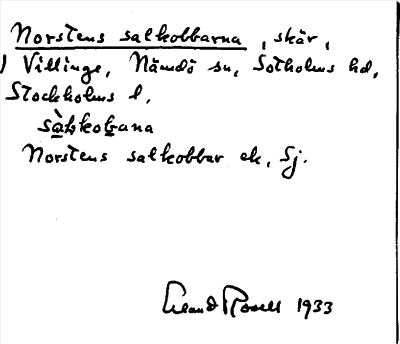 Norstens salkobbarna, skär,
Villinge, Nämdö sn, Sotholms hd,
Stockholms l,
Norstens salkobbar ek, Sj.
Rosell 1933